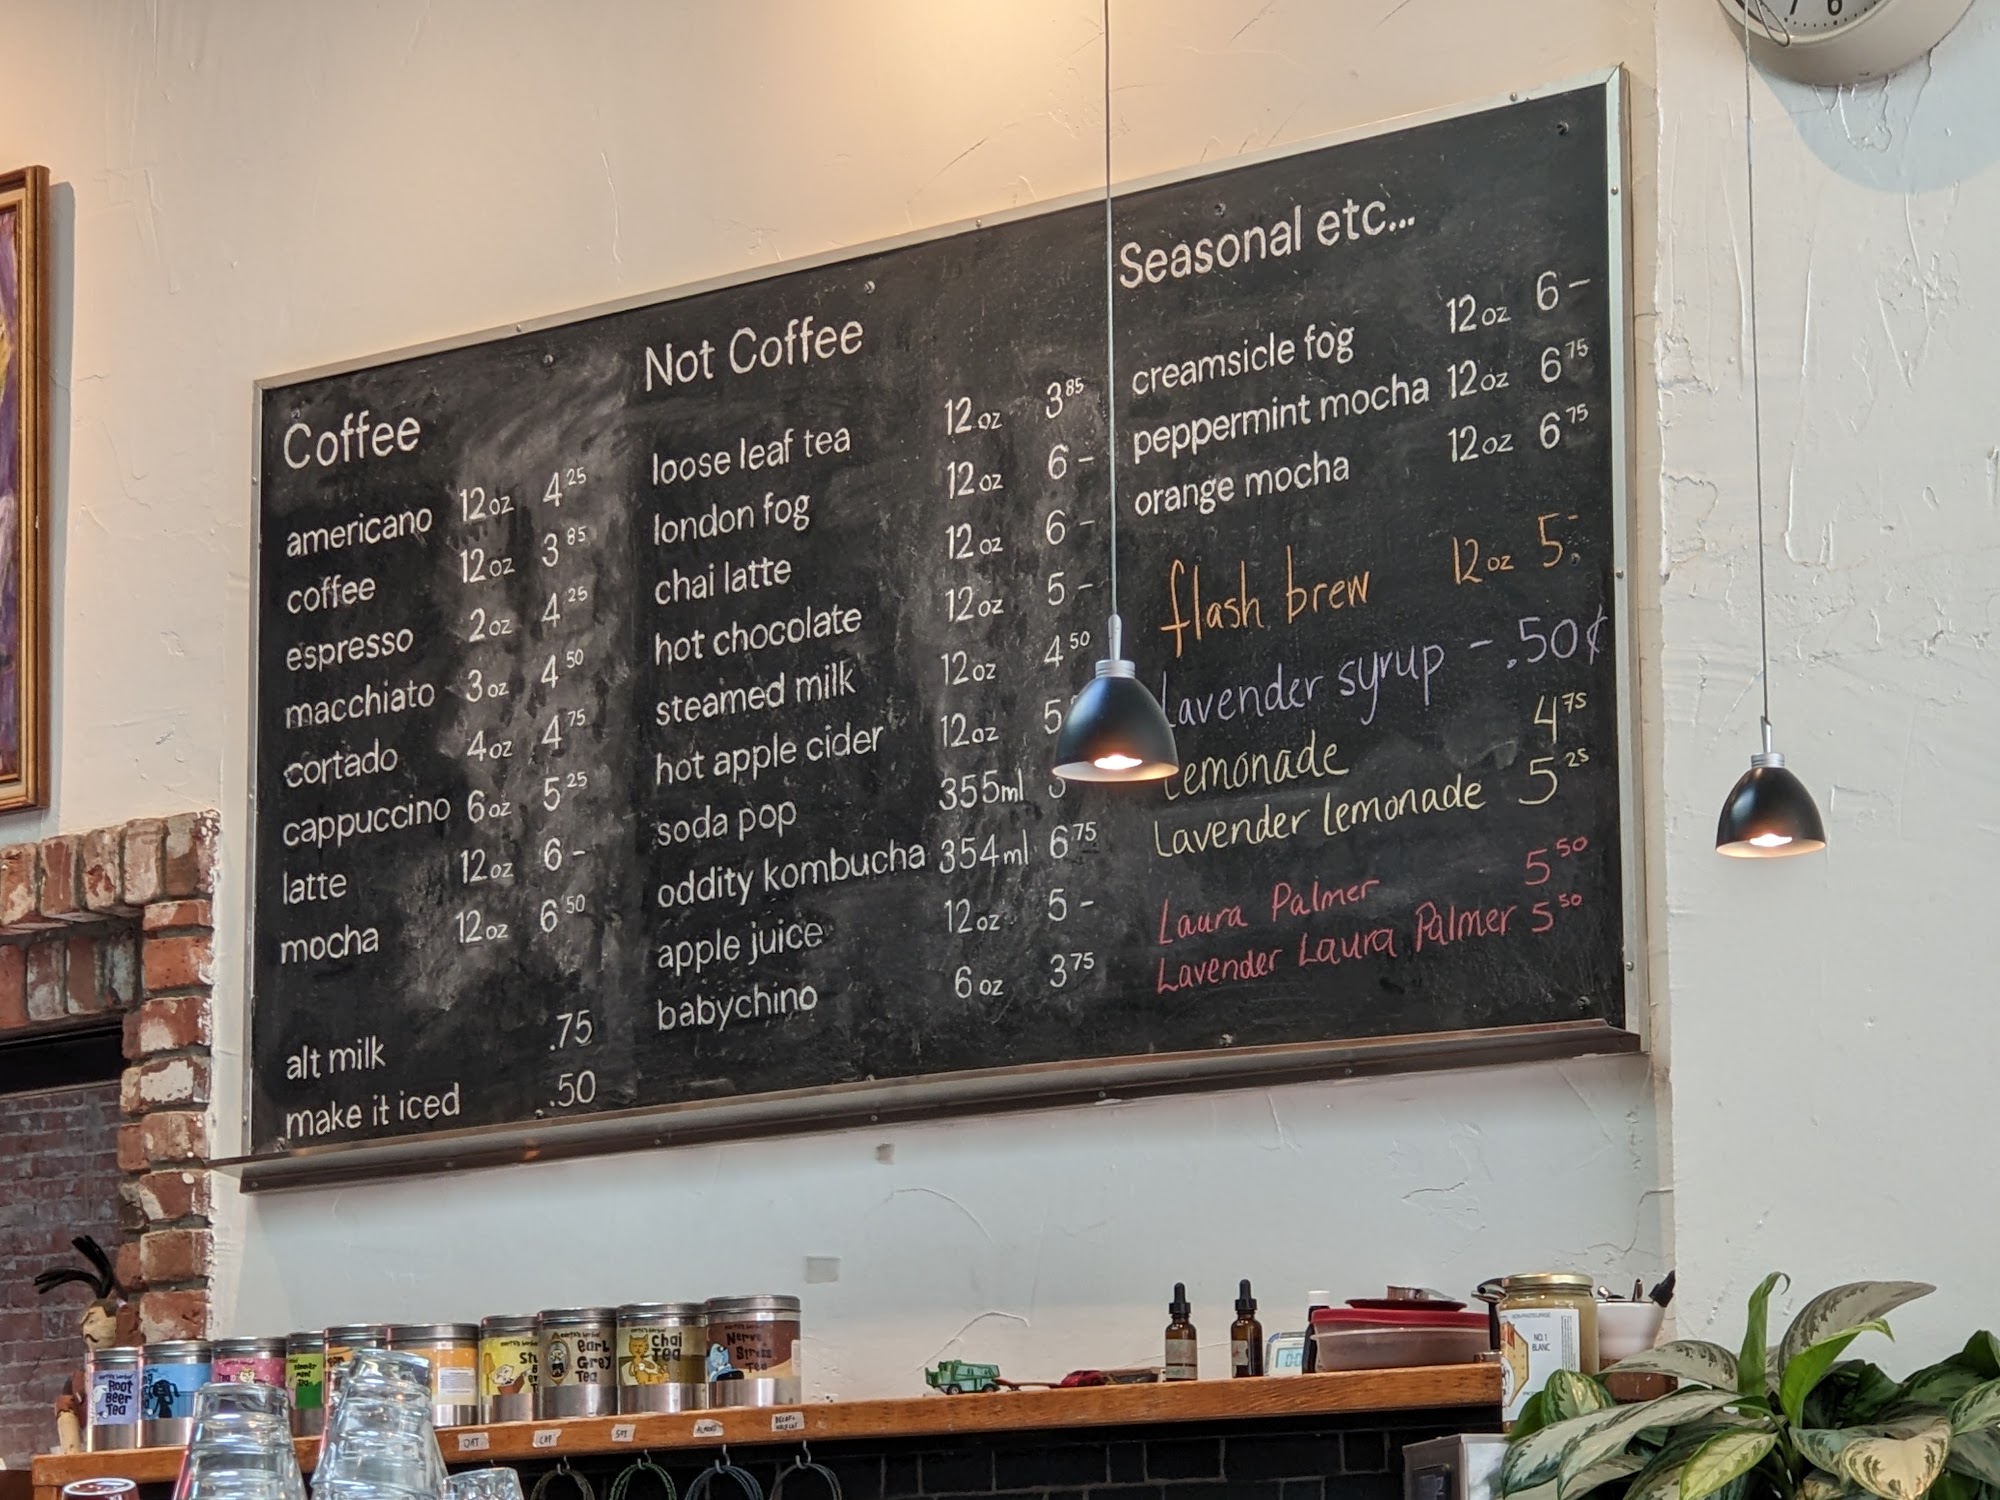 Coffee
americano 12oz 4 25
coffee 12oz 3 85
espresso 2oz 4 25
macchiato 3oz 4 50
cortado 4oz 4 75
cappuccino 6oz 5 25
latte 12oz 6 -
mocha 12oz 6 50
alt milk .75
make it iced .50
Not Coffee
loose leaf tea 12oz 3 85
london fog 12oz 6 -
chai latte 12oz 6 -
hot chocolate 12oz 5 -
steamed milk 12oz 4 50
hot apple cider 12oz 5
soda pop 355ml
oddity kombucha 354ml 6 75
apple juice 12oz 5 -
babychino 6oz 3 75
Seasonal etc...
creamsicle fog 12oz 6 -
peppermint mocha 12oz 6 75
orange mocha 12oz 6 75
flash brew 12oz 5 -
lavender syrup - .50¢
Lemonade 4 75
Lavender Lemonade 5 25
Laura Palmer 5 50
Lavender Laura Palmer 5 50
Root Beer Tea
Earl Grey Tea
Chai Tea
Nerve Stress Tea
OAT
CAP
SOY
ALMOND
NO.1
BLANC